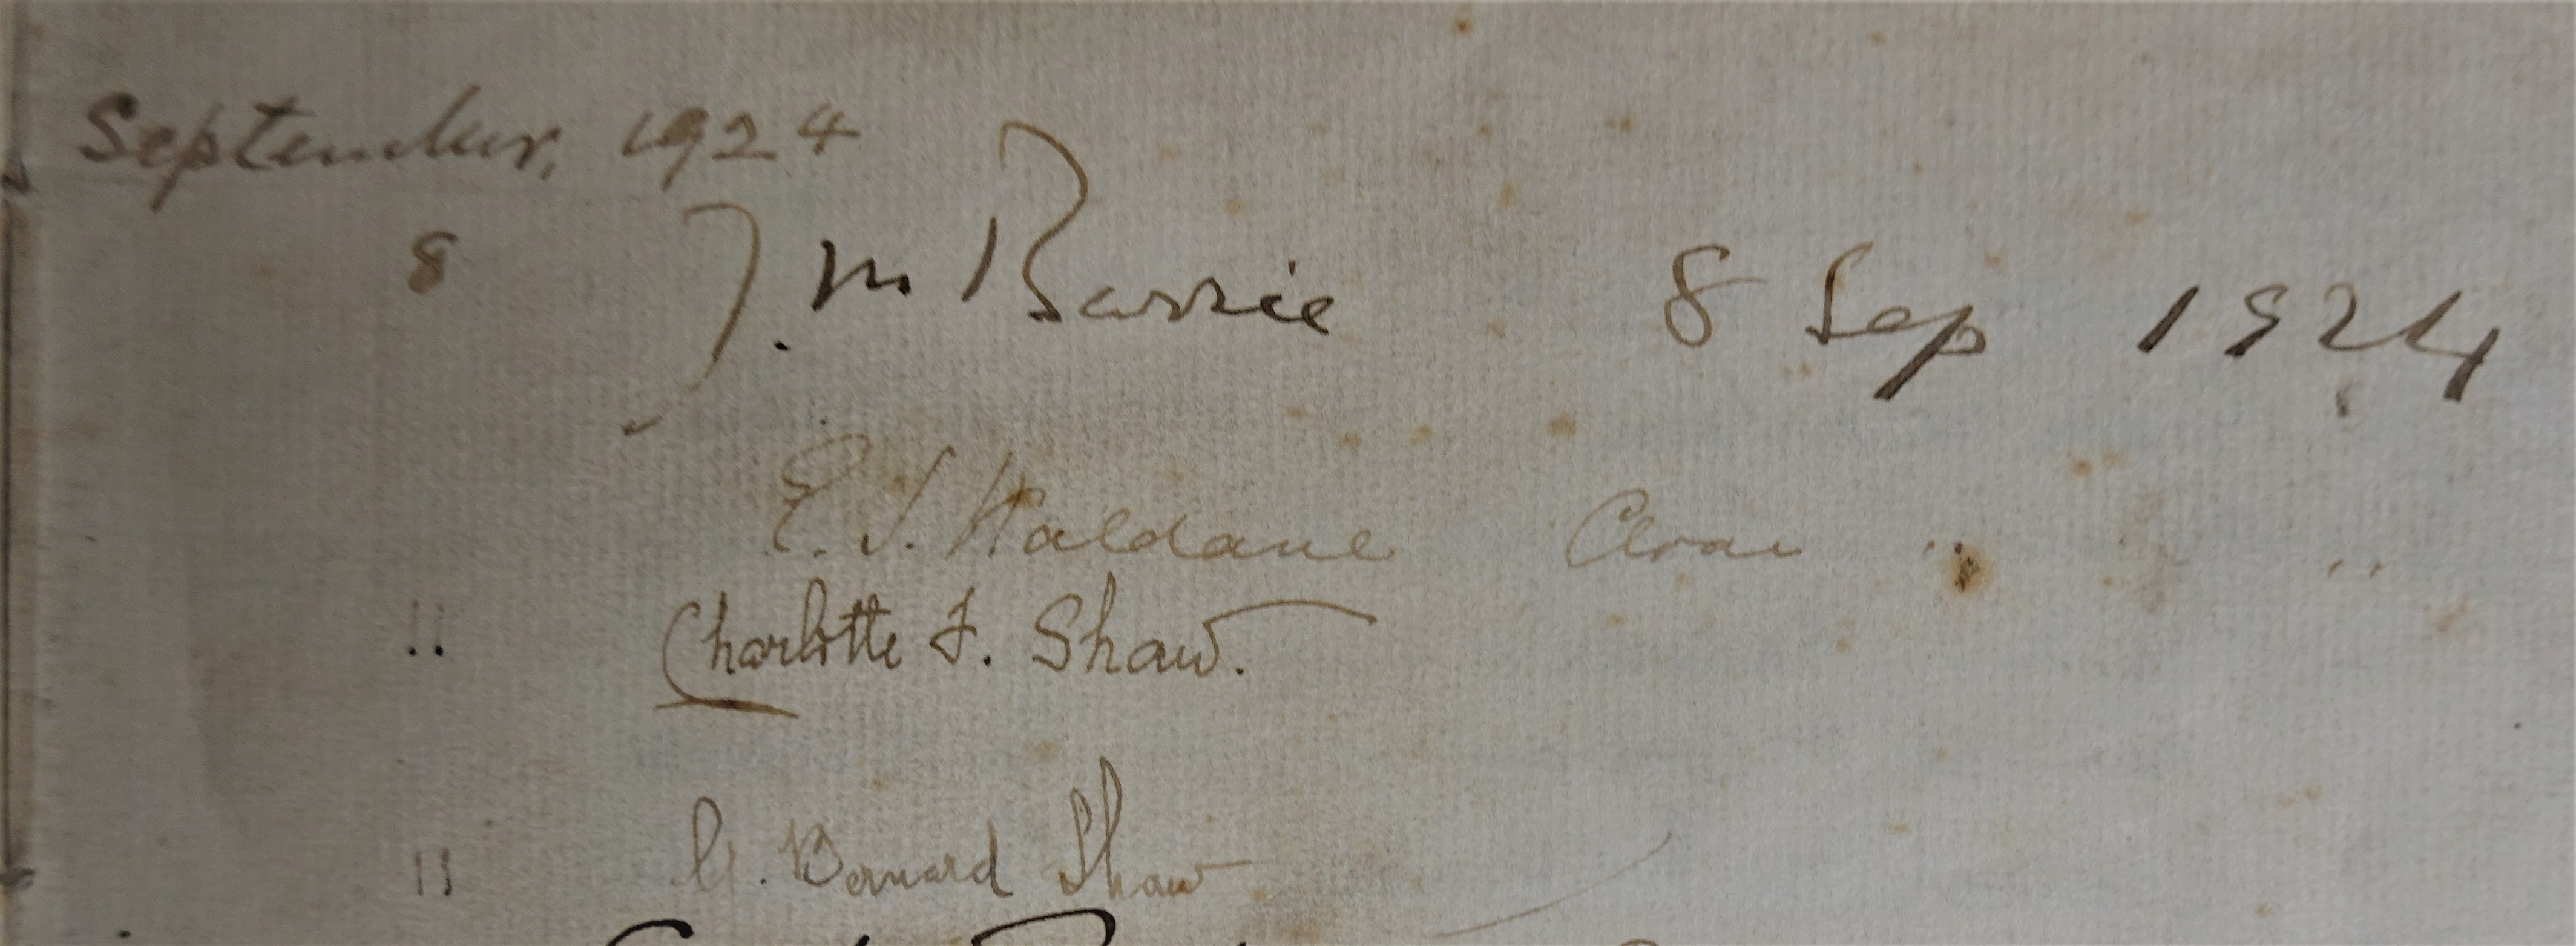 September, 1924
8 J. M Barrie 8 Sep 1924
E. S. Haldane Cloan " "
" Charlotte F. Shaw.
" G. Bernard Shaw